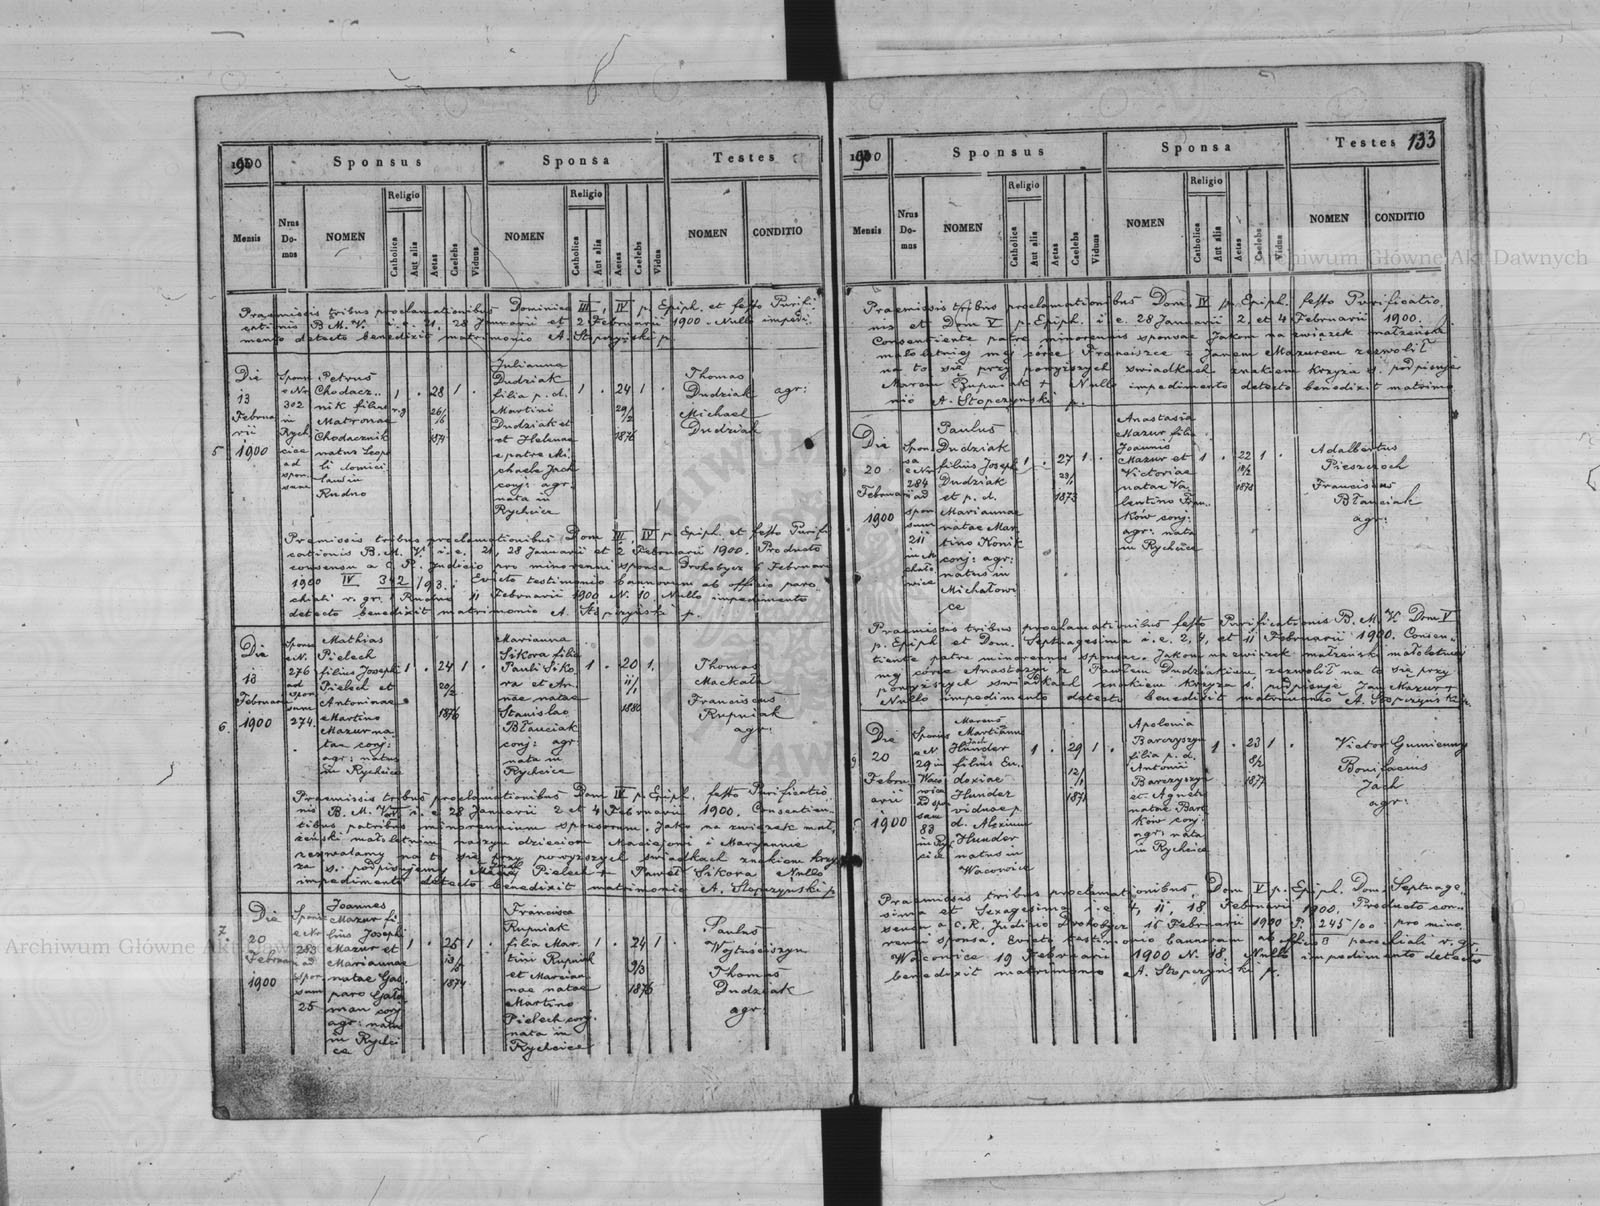 1900
Sponsus
Sponsa
Testes
Mensis
Nrus Domus
NOMEN
Religio
Catholica
Aut alia
Aetas
Caelebs
Viduus
NOMEN
Religio
Catholica
Aut alia
Aetas
Caelebs
Vidua
NOMEN
CONDITIO
Praemissis tribus proclamationibus Dominica III, IV p. Epiph. et festo Purifi
cationis B. M. V. i. e. 21, 28 Januarii et 2 Februarii 1900. Nullo impedi
mento detecto benedixit matrimonio A. Stopczyński p.
5
Die
13
Februa
rii
1900
Sponsi
e Nr
302
in
Rych
cice
ad
spon
sam
Petrus
Chodacz
nik filius
Matronae
Chodacznik
natus Leopo
li domici
lans in
Rudno
1
r. g.
28
26/6
1871
1
Julianna
Dudziak
filia p. d.
Martini
Dudziak et
et Helenae
e patre Mi
chaele Jach
conj: agr:
nata in
Rychcice
1
24
29/2
1876
1
Thomas
Dudziak
Michael
Dudziak
agr:
Praemissis tribus proclamationibus Dom III, IV p. Epiph. et festo Purifi
cationis B. M. V. i. e. 21, 28 Januarii et 2 Februarii 1900. Producto
consensu a C. R. Judicio pro minorenni sponsa Drohobycz 6 Februarii
1900 IV 342/93. Evecto testimonio bannorum ab officio paro
chiali r. gr. Rudno 11 Februarii 1900 N. 10. Nullo impedimento
detecto benedixit matrimonio A. Stopczyński p.
6.
Die
13
Februarii
1900
Sponsi
e N.
276
ad
spon
sam
274.
Mathias
Pielech
filius Josephi
Pielech et
Antoninae
Martino
Mazur na
tae conj:
agr: natus
in Rychcice
1
24
20/2
1876
1
Marianna
Sikora filia
Pauli Siko
ra et An
nae natae
Stanislao
Błauciak
conj: agr:
nata in
Rychcice
1
20
11/1
1880
1
Thomas
Mackała
Franciscus
Rupniak
agr:
Praemissis tribus proclamationibus Dom IV p. Epiph. festo Purificatio
nis B. M. V. i. e. 28 Januarii 2 et 4 Februarii 1900. Consentien
tibus patribus minorennium sponsorum. Jako na związek mał
żeński małoletnim naszym dzieciom Maciejowi i Maryannie
zezwalamy na to się przy powyższych świadkach znakiem krzy
ża s. podpisujemy Pielech + Paweł Sikora Nullo
impedimento detecto benedixit matrimonio A. Stopczyński p.
7
Die
20
Februarii
1900
Sponsi
e Nr
253
ad
spon
sam
25
Joannes
Mazur fi
lius Josephi
Mazur et
Mariannae
natae Gas
paro Gała
man conj
agr: natus
in Rychci
ce
1
25
1874
1
Francisca
Rupniak
filia Mar
tini Rupniak
et Marian
nae natae
Martino
Pielech conj:
nata in
Rychcice
1
24
9/3
1876
1
Paulus
Wojtuściszyn
Thomas
Dudziak
agr:
1900
Sponsus
Sponsa
Testes
133
Mensis
Nrus Domus
NOMEN
Religio
Catholica
Aut alia
Aetas
Caelebs
Viduus
NOMEN
Religio
Catholica
Aut alia
Aetas
Caelebs
Vidua
NOMEN
CONDITIO
Praemissis tribus proclamationibus Dom. IV p. Epiph. festo Purificatio
nis et Dom V p. Epiph. i e. 28 Januarii 2. et 4 Februarii 1900.
Consentiente patre minorennis sponsae Jakom na związek małżeński
małoletniej mej córce Franciszce z Janem Mazurem zezwolił
na to się przy powyższych świadkach znakiem krzyża s. podpisuję
Marcin Rupniak + Nullo impedimento detecto benedixit matrimo
nio A. Stopczyński p.
Die
20
Februarii
1900
Spon
sa
e Nr
284
ad
spon
sum
211
in Mi
chało
wice
Paulus
Dudziak
filius Joseph
Dudziak
et p. d.
Mariannae
natae Mar
tino Konik
conj: agr:
natus in
Michałowi
ce
1
27
1873
1
Anastasia
Mazur filia
Joannis
Mazur et
Victoriae
natae Va
lentino
conj:
agr: nata
in Rychcice
1
22
18/2
1878
1
Adalbertus
Pieszczoch
Franciscus
Błauciak
agr:
Praemissis tribus proclamationibus festo Purificationis B. M. V. Dom V
p. Epiph et Dom. Septuagesima i. e. 2, 4, et 11 Februarii 1900. Consen
tiente patre minorennis sponsae. Jakom na związek małżeński małoletniej
mej córce Anastazyi z Pawłem Dudziakiem, zezwolił na to się przy
powyższych świadkach znakiem krzyża s. podpisuję Jan Mazur +
Nullo impedimento detecto benedixit matrimonio A. Stopczyński p.
Die
20
Febru
arii
1900
Sponsus
e N.
29 in
Waco
wice
ad spo
sam
83
in Ry
cice
Marcus
Martianus
Hunder
filius Eu
doxiae
Hunder
viduae p.
d. Alexium
Hunder
natus in
Wacowice
1
29
12/1
1871
1
Apolonia
Barczyszyn
filia p. d.
Antonii
Barczyszyn
et Agnetis
natae Bart
ków conj
agr: nata
in Rychcice
1
23
8/2
1877
1
Victor Gumienny
Bonifacius
Jach
agr:
Praemissis tribus proclamationibus Dom V p. Epiph. Dom. Septuage
sima et Sexagesima i. e 4, 11, 18 Februarii 1900. Producto con
sensu a C. R. Judicio Drohobycz 15 Februarii 1900 P. 245/00 pro mino
renni sponsa. Evecto testimonio bannorum ab officio parochiali r. gr.
Wacowice 19 Februarii 1900 N. 18, Nullo impedimento detecto
benedixit matrimonio A. Stopczyński p.
Archiwum Główne Akt Dawnych
Archiwum Główne Akt Dawnych